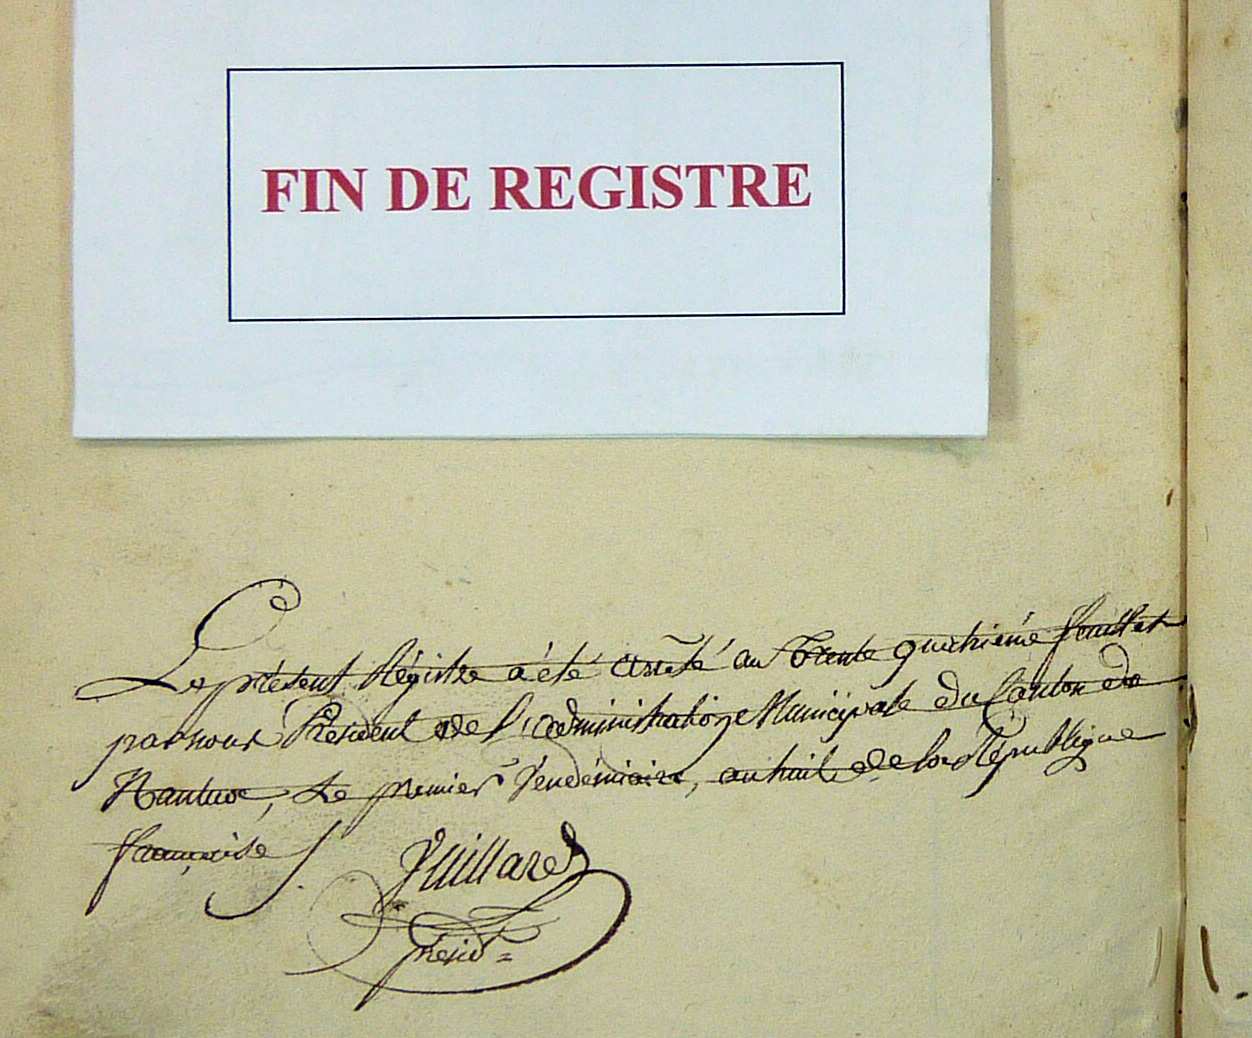 FIN DE REGISTRE
Le présent Régistre a été arrêté au Trente quatrième feuillet
par nous Président de l'administration Municipale du Canton de
Nantua, Le premier Vendémiaire, an huit de la République
française
Vuillard
Presid.t =